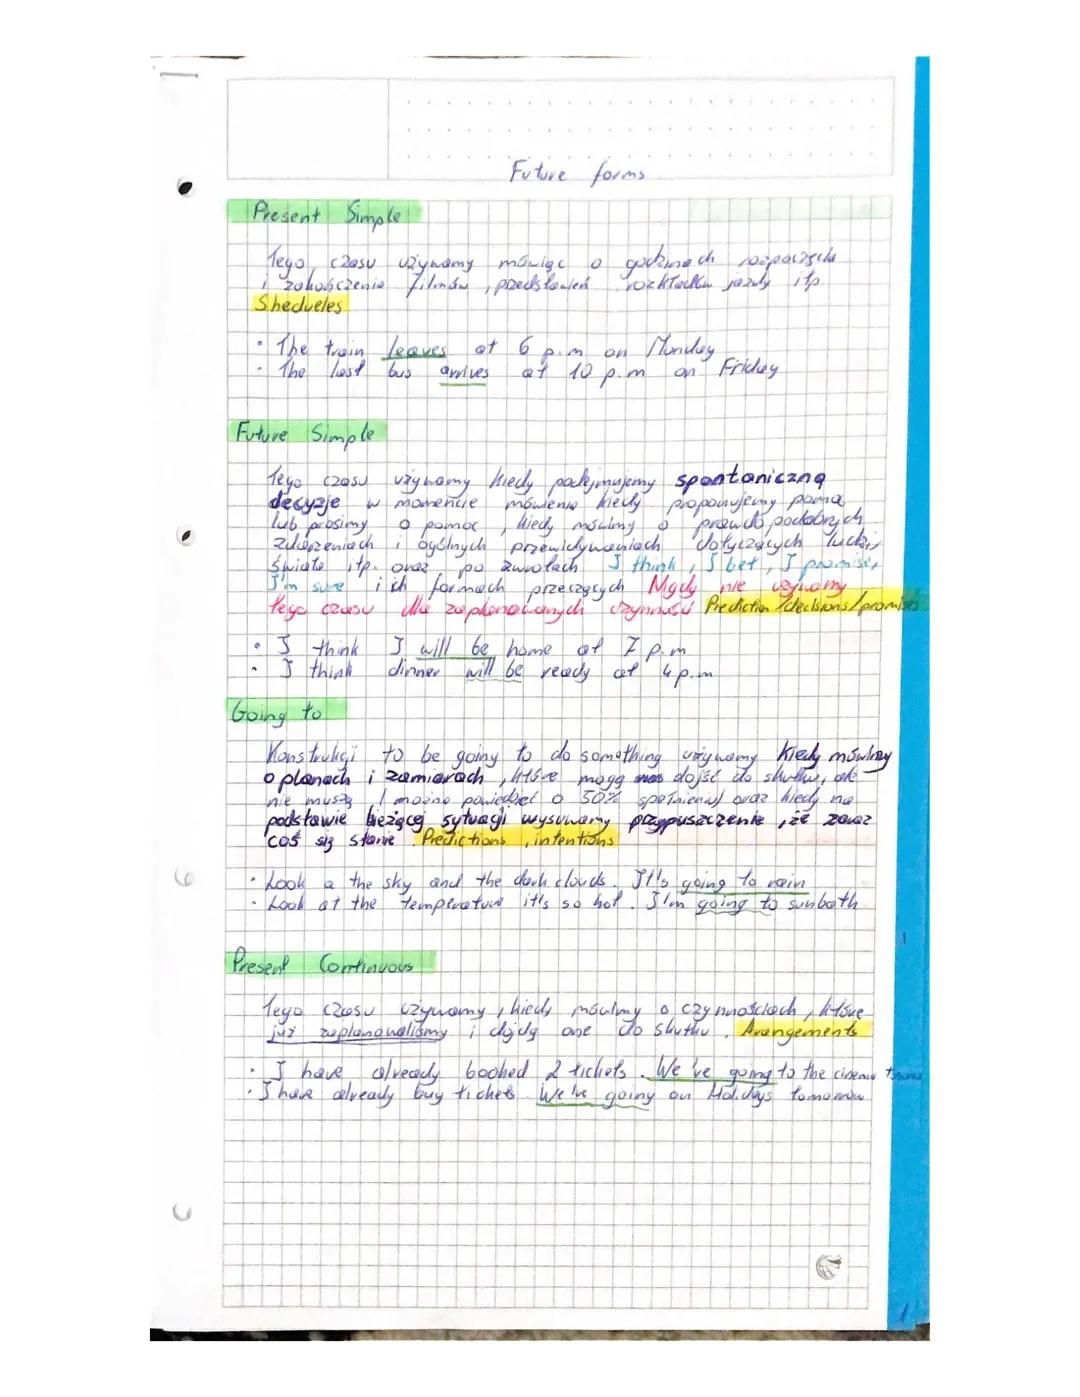 Future forms
Present Simple
Tego czasu używamy mówiąc o godzinach rozpoczęcia
i zakończenia filmów, przedstawień rozkładów jazdy itp
Shedueles
• The train leaves at 6 p.m on Munday
• The last bus arrives at 10 p.m on Friday
Future Simple
Tego czasu używamy kiedy podejmujemy spontaniczną
decyzje w momencie mówienia kiedy proponujemy pomoc
lub prosimy o pomoc, kiedy mówimy o prawdopodobnych
zdarzeniach i ogólnych przewidywaniach dotyczących ludzi,
świata itp. oraz po zwrotach I think, I bet, I promise,
I'm sure i ich formach przeczących Nigdy nie używamy
tego czasu dla zaplanowanych czynności Prediction/decisions/promises
• I think I will be home at 7 p.m
• I think dinner will be ready at 4 p.m
Going to
Konstrukcji to be going to do something używamy kiedy mówimy
o planach i zamiarach, które mogą dojść do skutku, ale
nie muszą (można powiedzieć o 50% spełnieniu) oraz kiedy na
podstawie bieżącej sytuacji wysuwamy przypuszczenie, że zaraz
coś się stanie. Predictions, intentions
• Look a the sky and the dark clouds. It's going to rain
• Look at the temperature it's so hot. I'm going to sunbath
Present Continuous
Tego czasu używamy, kiedy mówimy o czynnościach, które
już zaplanowaliśmy i dojdą one do skutku. Arangements
• I have already booked 2 tickets. We've going to the cinema
• I have already buy tickets We've going on Holidays tomorrow